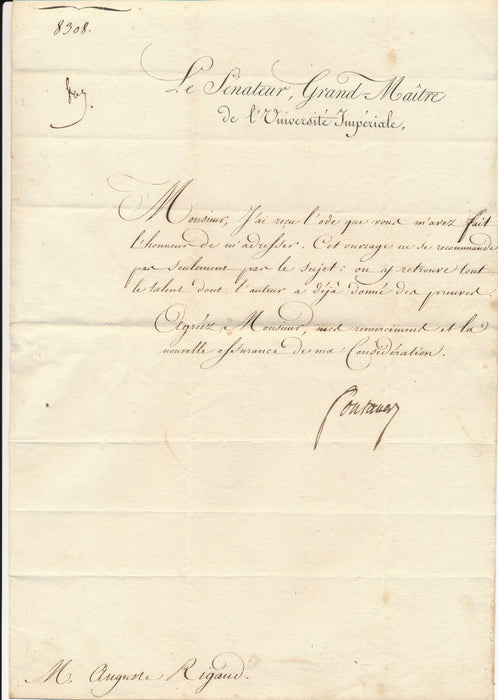 8308.
Le Sénateur, Grand-Maître
de l'Université Impériale,
Monsieur, J'ai reçu l'ode que vous m'avez fait
l'honneur de m'adresser. Cet ouvrage ne se recommande
pas seulement par le sujet : on y retrouve tout
le talent dont l'auteur a déjà donné des preuves.
Agréez, Monsieur, mes remerciment et la
nouvelle assurance de ma Considération.
Fontanes
M. Auguste Rigaud.